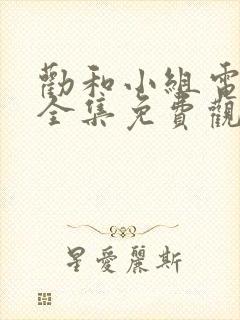 勸和小組電
全集免費觀
星愛麗斯